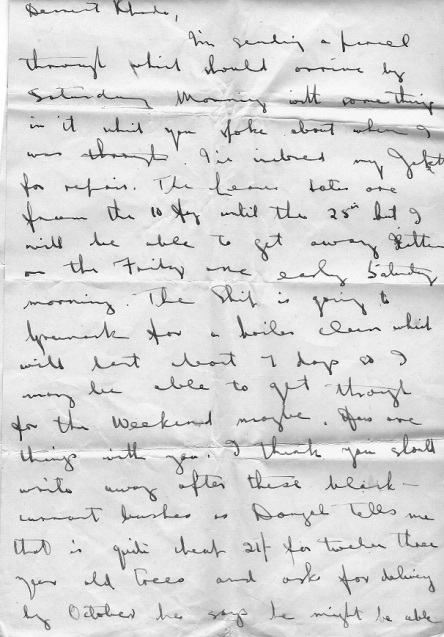 Dearest Rhoda,
I'm sending a parcel
through which should arrive by
Saturday Morning with something
in it which you spoke about when I
was through. I've inclosed my Jacket
for repair. The Leave dates are
from the 10 Aug until the 25th but I
will be able to get away either
on the Friday or early Saturday
morning. The Ship is going to
for a boiler clean which
will last about 7 days so I
may be able to get through
for the weekend maybe. How are
things with you. I think you should
write away after these black-
currant bushes as tells me
that is quite cheap 21/- for twelve three
year old trees and ask for delivery
by October he says he might be able